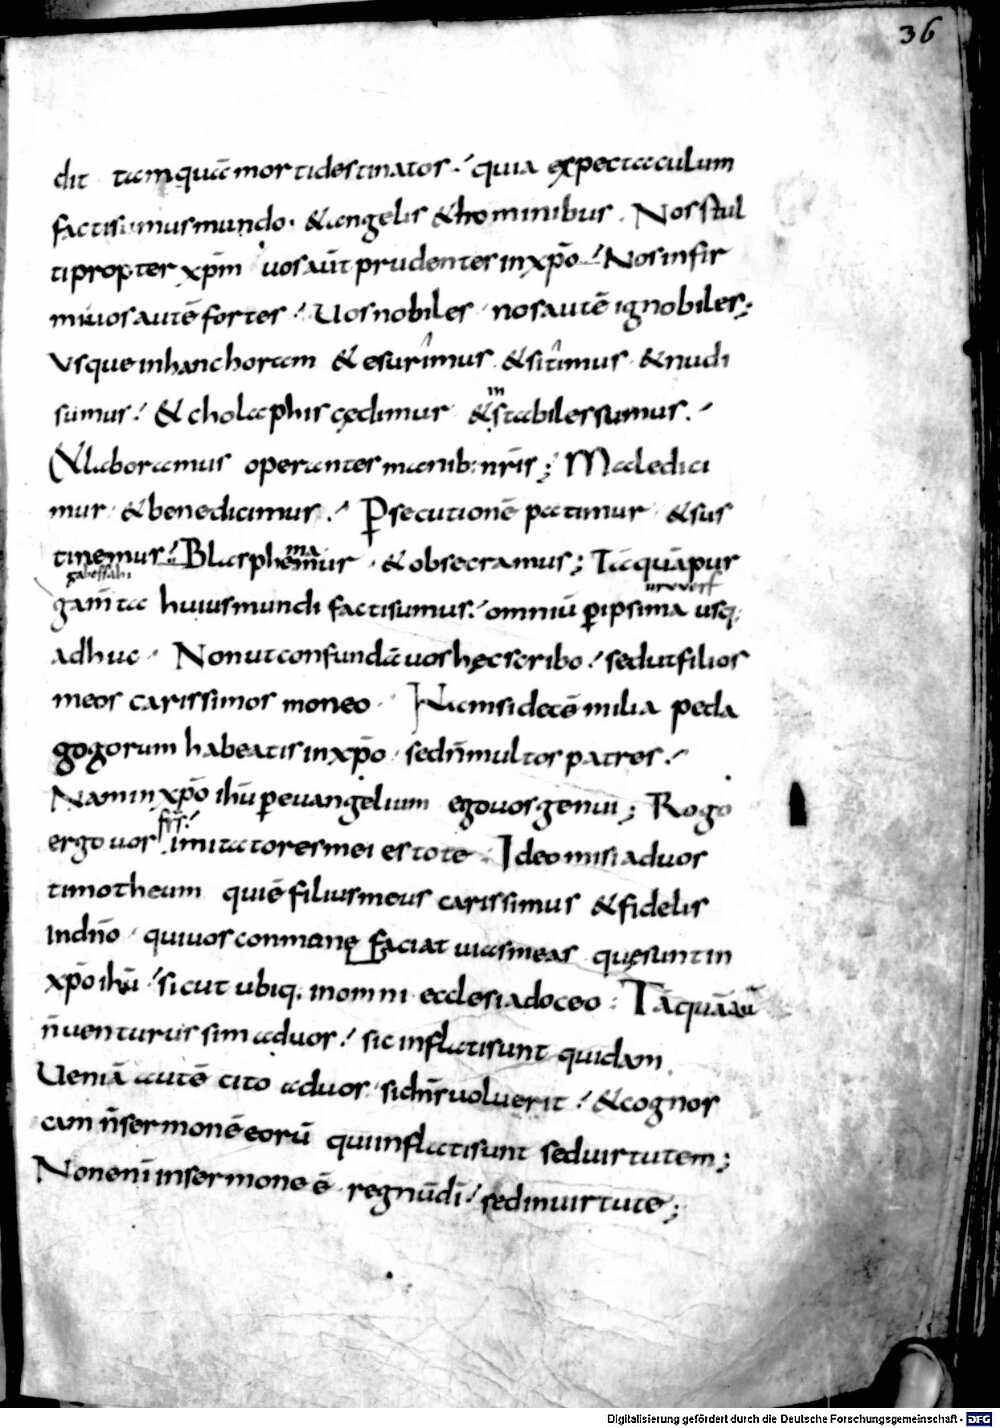 36
dit tamquā mortidestinatos. quia expectaculum
factisumusmundo. &angelis &hominibus. Nosstul
tipropter xp̄m uosaūt prudentesinxp̄o. Nosinfir
miuosautē fortes. Uosnobiles nosautē ignobiles;
Usqueinhanchoram &esurimus &sitimus &nudi
sumus. &cholaphis cędimur &
in
stabilessumus.
&laboramus operantes manib: nr̄is; Maledici
mur &benedicimus. P̲secutionē patimur &sus
tinemus. Blasphe
ma
mur &obsecramus; Tāquāpur
gam̄ta huiusmundi factisumus. omniū p̲ipsima usq;
adhuc. Nonutconfundā uoshęcscribo. sedutfilios
meos carissimos moneo. Namsidecē milia peda
gogorum habeatisinxp̄o. sedn̄multospatres.
Naminxp̄o ih̄u p̲euangelium egouosgenui; Rogo
ergouos
fr̄s
imitatoresmei estote. Ideomisiaduos
timotheum quiē filiusmeus carissimus &fidelis
Indn̄o. quiuosconmone faciat uiasmeas quęsuntin
xp̄o ih̄u sicut ubiq. inomni ecclesiadoceo: Tāquāaū
n̄uenturussim aduos. sicinflatisunt quidam.
Ueniā autē cito aduos sidn̄suoluerit. &cognos
cam n̄sermonē eorū quiinflatisunt seduirtutem;
Nonenīinsermone ē regnūdī. sedinuirtute;
Digitalisierung gefördert durch die Deutsche Forschungsgemeinschaft - DFG